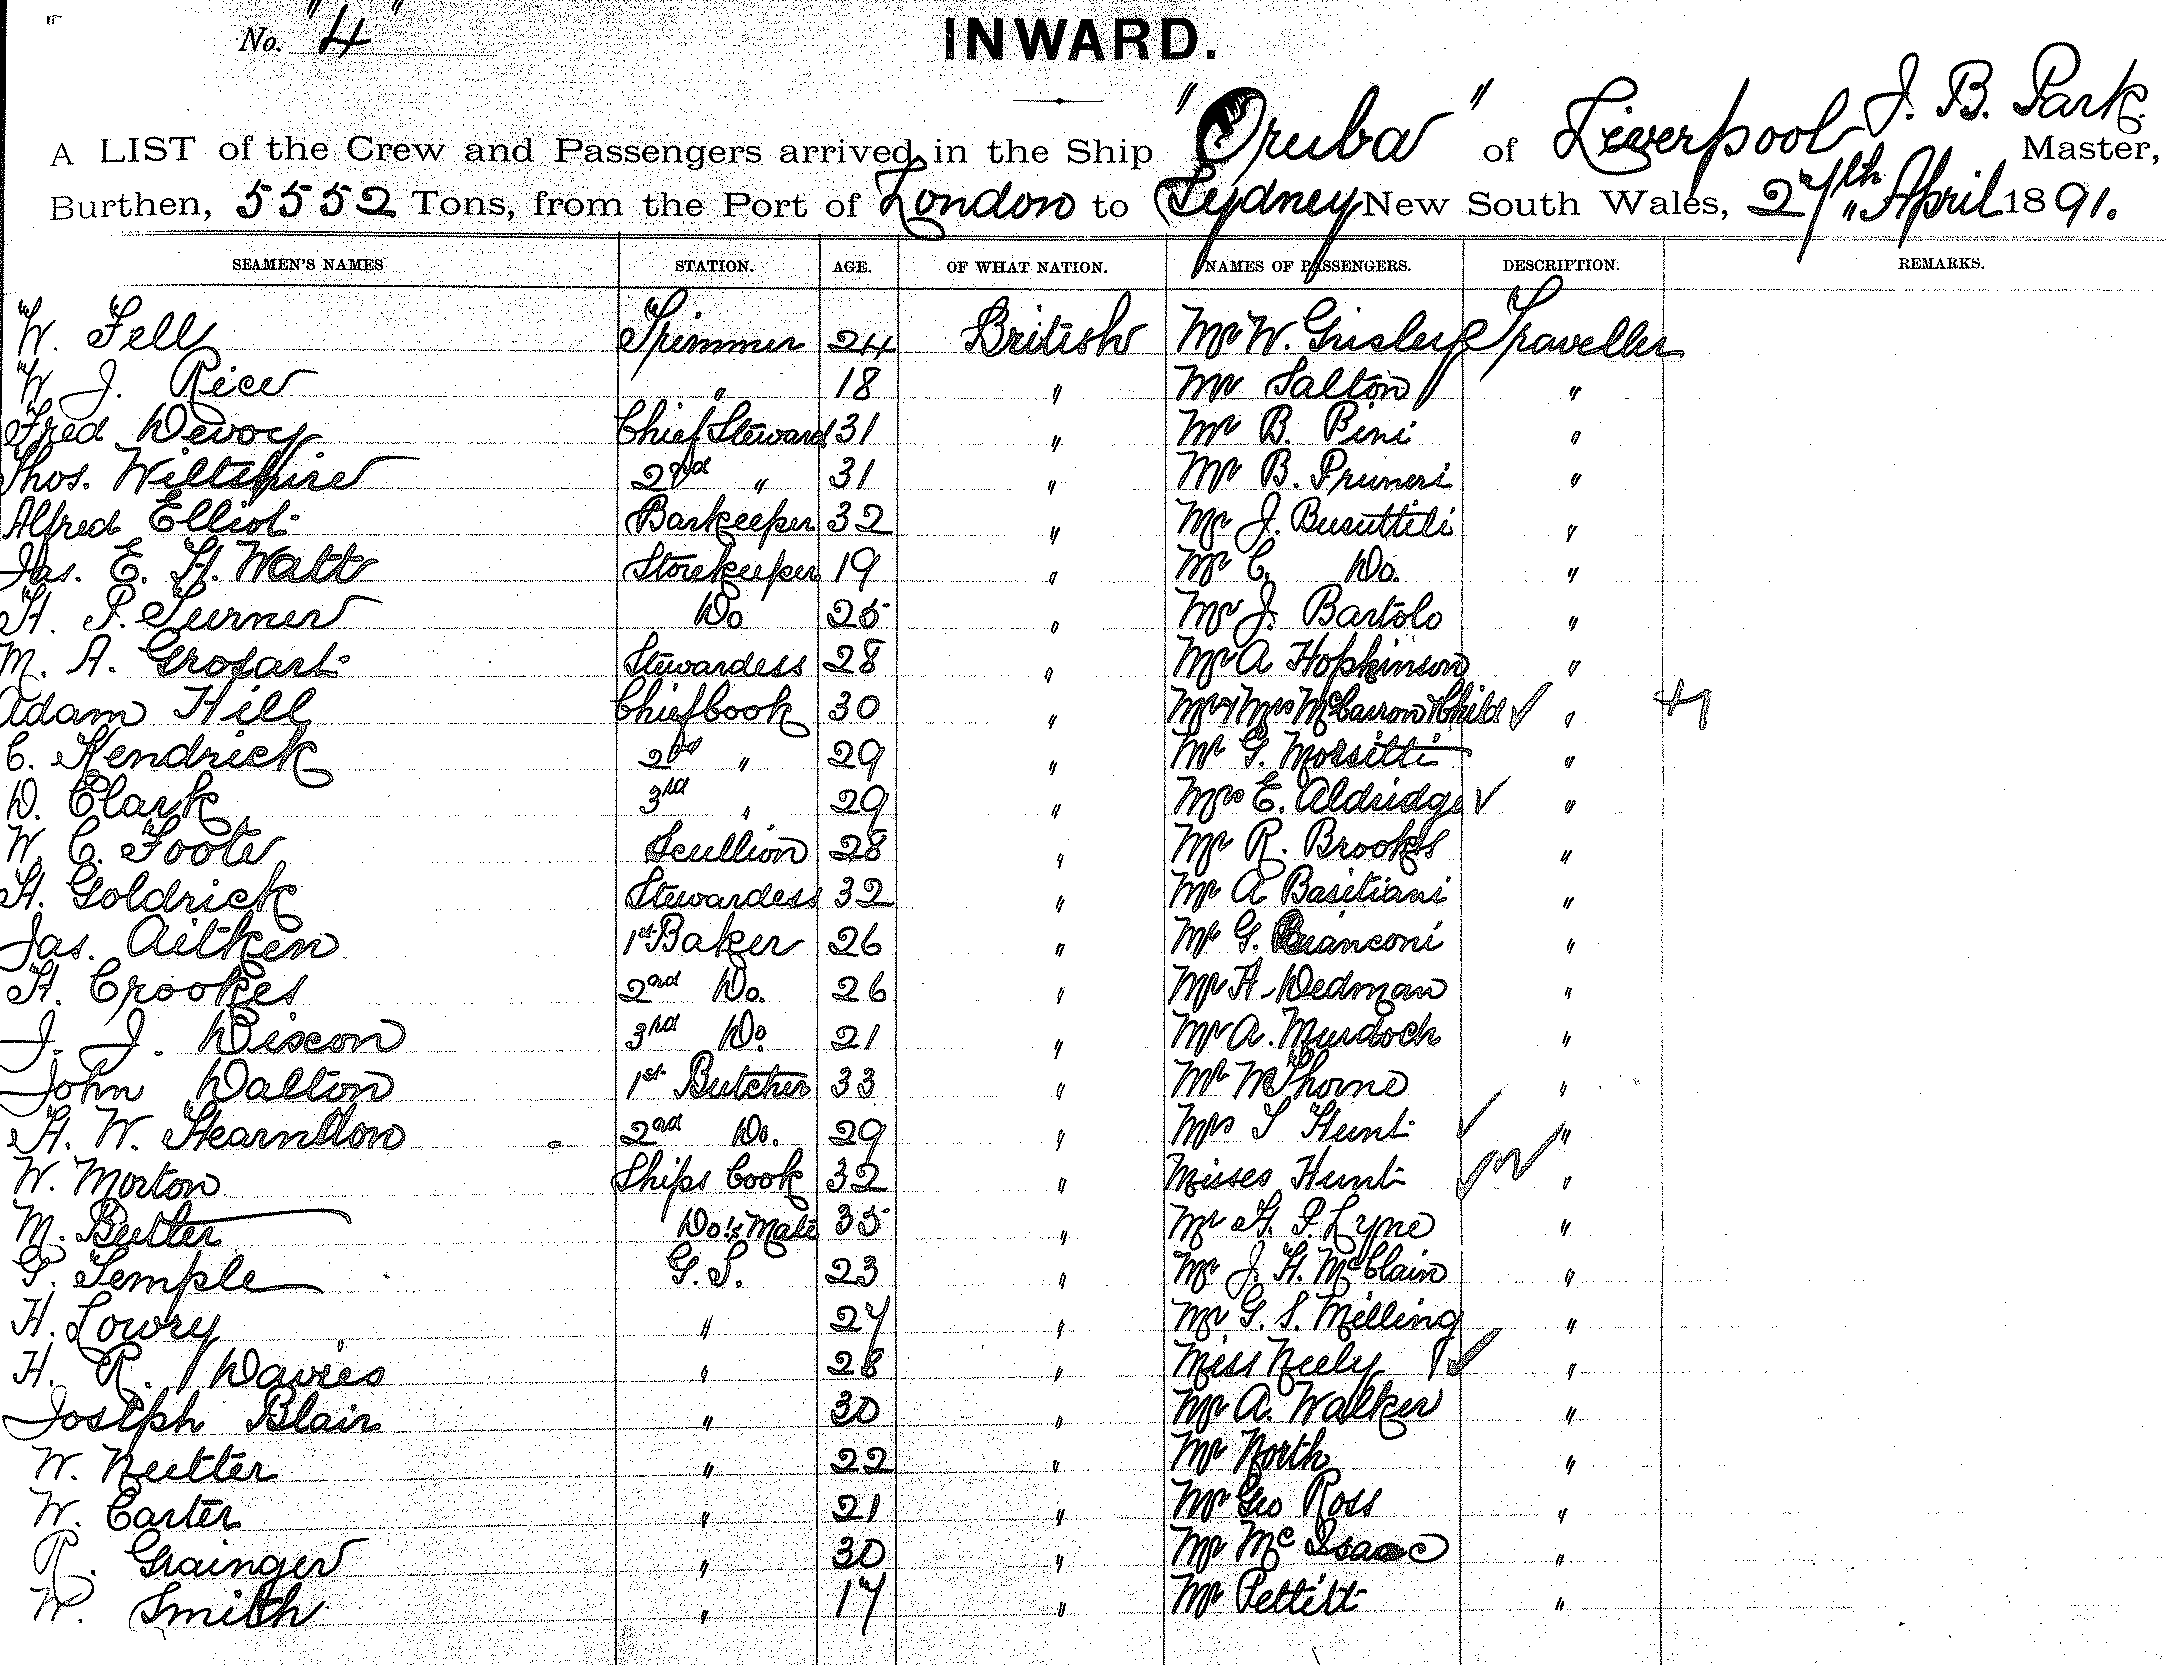 No. "4"
INWARD.
A LIST of the Crew and Passengers arrived in the Ship "Oruba" of Liverpool J. B. Park Master,
Burthen, 5552 Tons, from the Port of London to Sydney New South Wales, 27th April 1891.
SEAMEN'S NAMES STATION. AGE. OF WHAT NATION. NAMES OF PASSENGERS. DESCRIPTION. REMARKS.
W. Fell Trimmer 24 British Mr W. Grisley Traveller
W J. Rice " 18 " Mr Salton "
Fred Devoy Chief Steward 31 " Mr B. Pini "
Thos. Wiltshire 2nd " 31 " Mr B. Pruneri "
Alfred Elliot Barkeeper 32 " Mr J. Busuttili "
Jas. E. H. Watt Storekeeper 19 " Mr C. Do. "
H. P. Turner Do 25 " Mr J. Bartolo "
M. A. Grosart Stewardess 28 " Mr A Hopkinson "
Adam Hill Chief Cook 30 " Mr & Mrs McCarron & Child "
C. Kendrick 2nd " 29 " Mr G. "
D. Clark 3rd " 29 " Mrs E. Aldridge "
W. C. Foote Scullion 28 " Mr R. Brooks "
H. Goldrick Stewardess 32 " Mr A Basitiani "
Jas. Aitken 1st Baker 26 " Mr G. Bianconi "
H. Crookes 2nd Do. 26 " Mr H. Dedman "
J. J. Dixon 3rd Do. 21 " Mr A. Murdoch "
John Dalton 1st Butcher 33 " Mr W Thorne "
H. W. 2nd Do. 29 " Mrs S Hunt "
W. Morton Ships Cook 32 " Misses Hunt "
M. Butler Do's Mate 35 " Mr H. P. Lyne "
G. Temple G. S. 23 " Mr J. H. McClain "
H. Lowry " 27 " Mr G. S. Milling "
H. R. Davies " 28 " Miss Neely "
Joseph Blair " 30 " Mr A. Walker "
W. Nutter " 22 " Mr North "
W. Carter " 21 " Mr Geo Ross "
R. Grainger " 30 " Mr McIsaac "
W. Smith " 17 " Mr Pettitt "